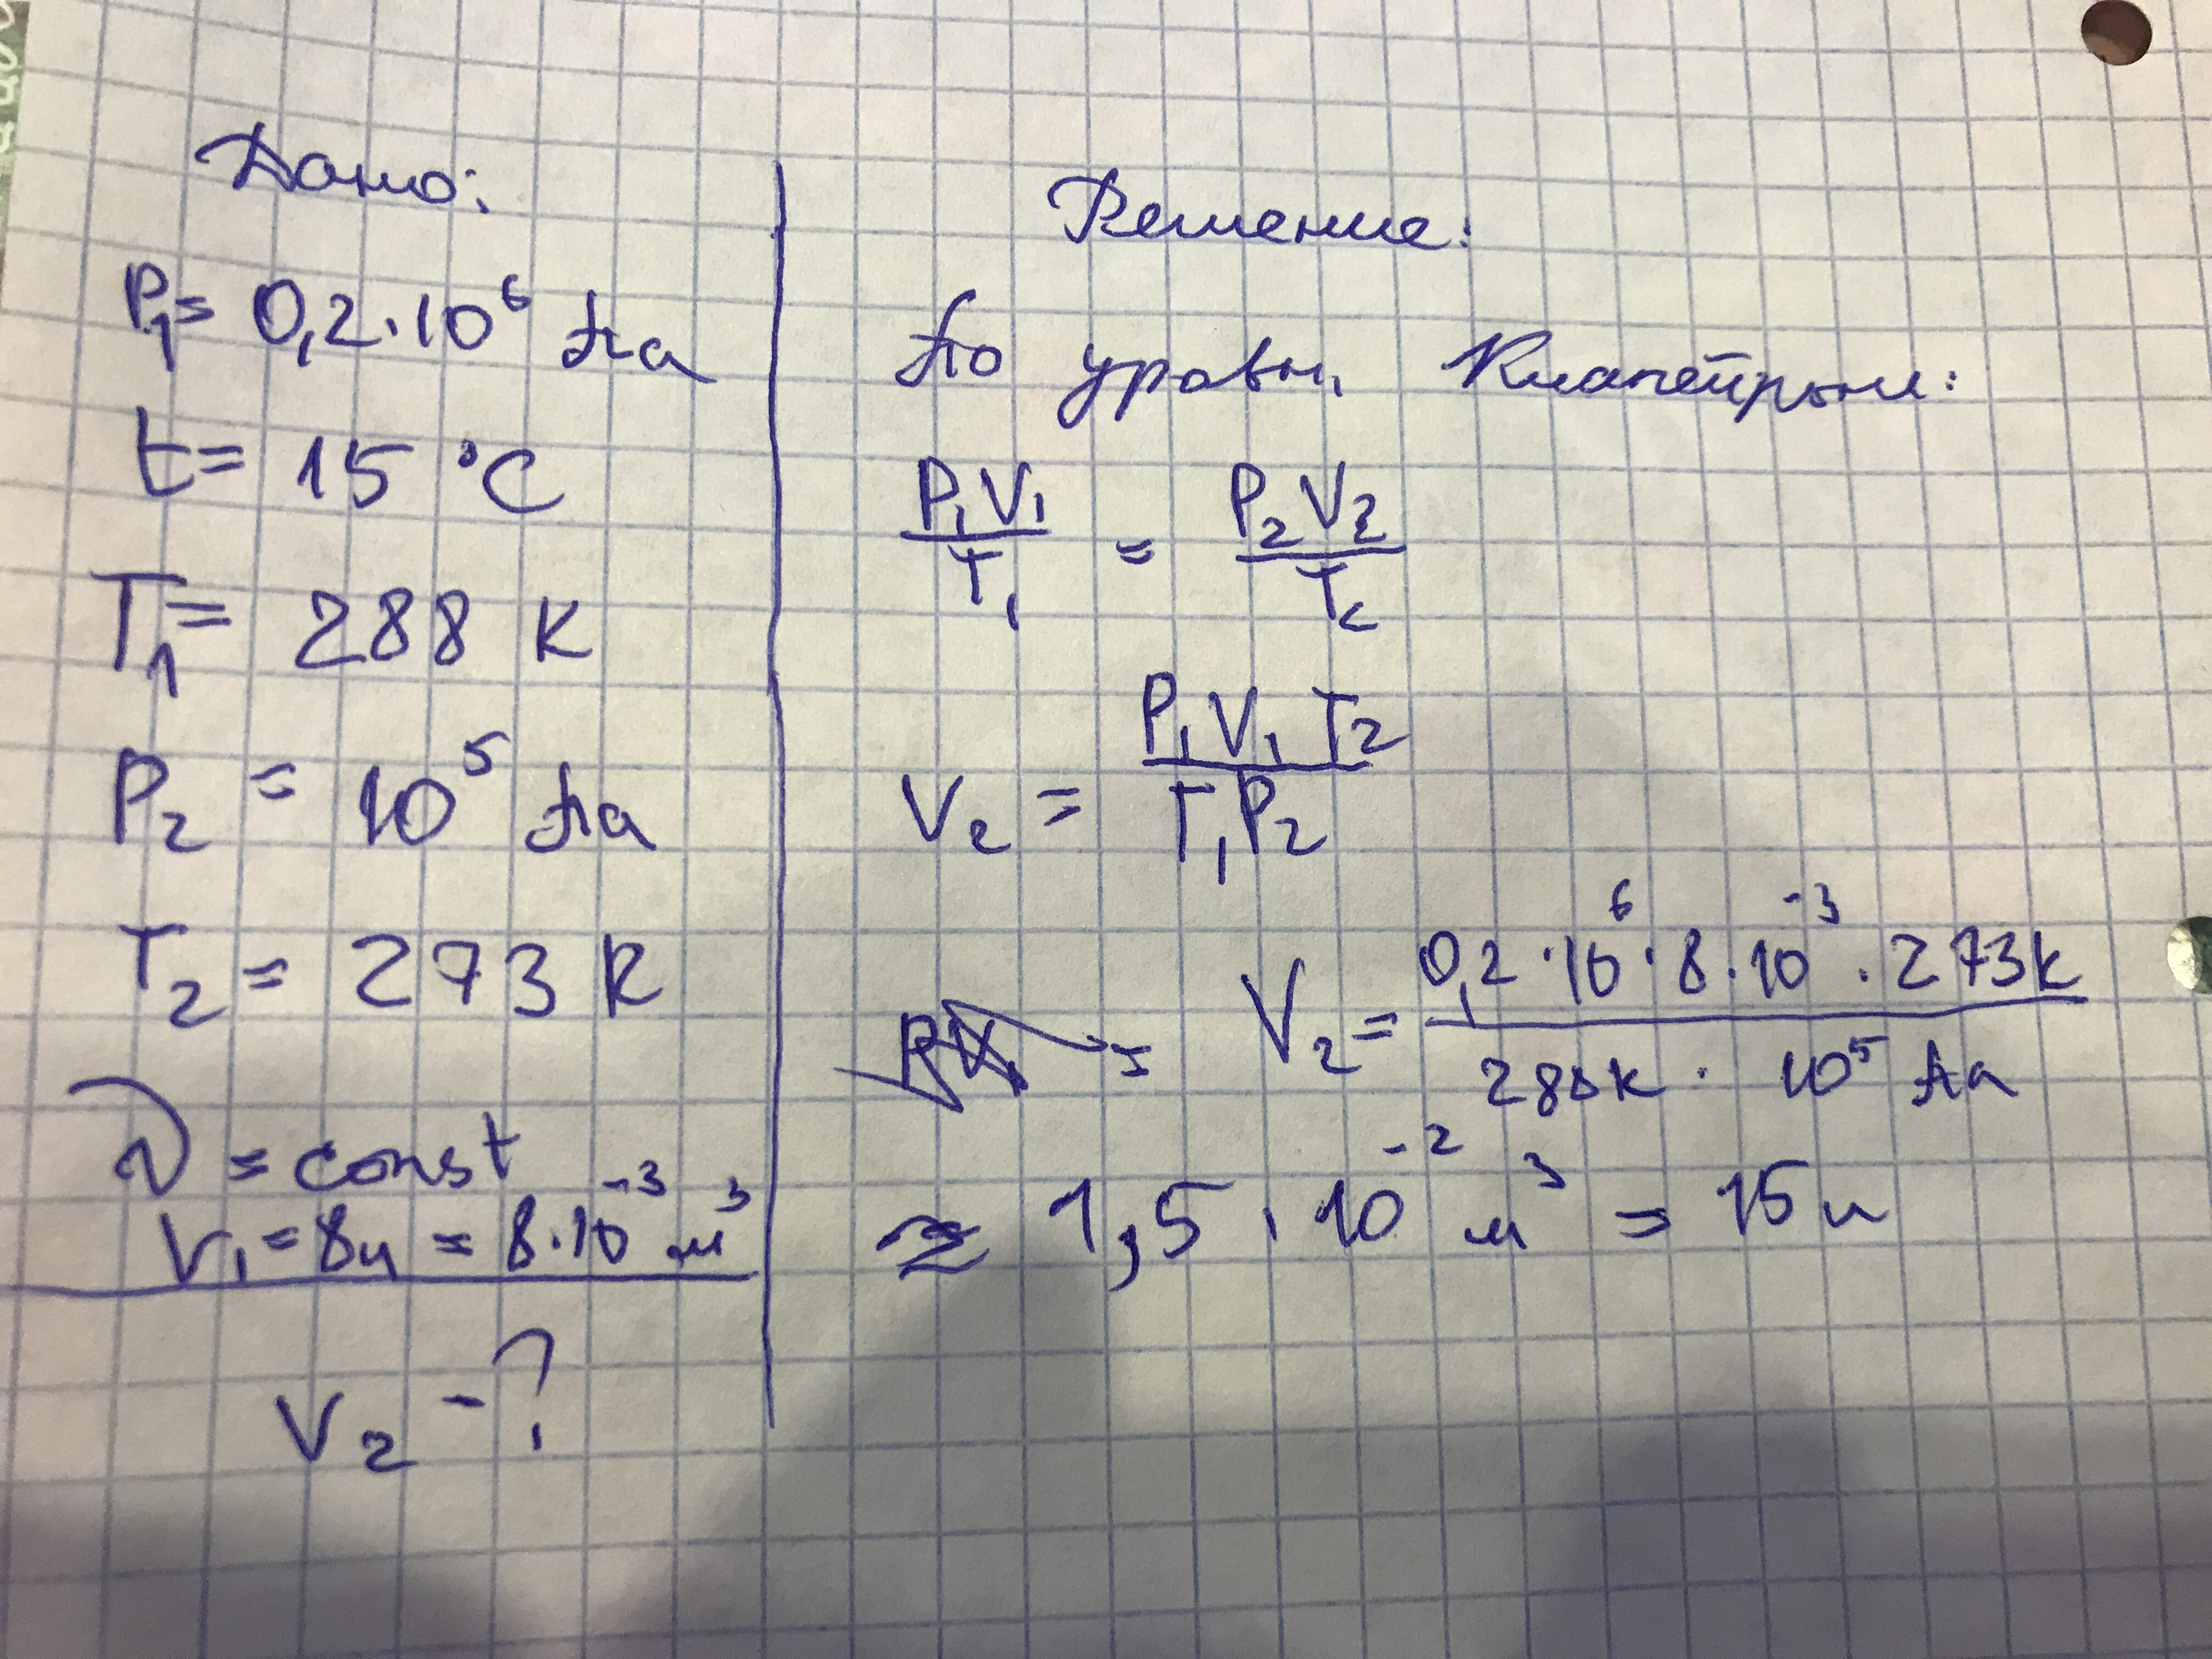 Дано:
P₁ = 0,2·10⁶ Па
t = 15 °C
T₁ = 288 К
P₂ = 10⁵ Па
T₂ = 273 К
ν = const
V₁ = 8л = 8·10⁻³ м³
V₂ - ?
Решение:
По уравн. Клапейрона:
P₁V₁/T₁ = P₂V₂/T₂
V₂ = P₁V₁T₂/T₁P₂
V₂ = 0,2·10⁶·8·10⁻³·273К/288К·10⁵ Па
≈ 1,5·10⁻² м³ = 15л